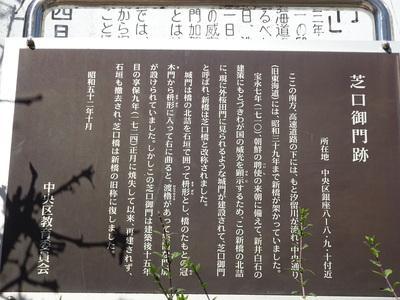 芝口御門跡
所在地　中央区銀座八-八・九・十付近
ここの南方、高速道路の下には、もと汐留川が流れ、中央通り
(旧東海道)には、昭和三十九年まで新橋が架かっていました。
宝永七年(一七一〇)朝鮮の聘使の来朝に備えて、新井白石の
建策にもとづきわが国の威光を顕示するため、この新橋の北詰
に、現に外桜田門に見られるような城門が建設されて、芝口御門
と呼ばれ、新橋は芝口橋と改称されました。
城門は橋の北詰を石垣で囲って枡形とし、橋のたもとの冠
木門から枡形に入って右に曲ると、渡櫓があって
が設けられていました。しかしこの芝口御門は建築後十五年
目の享保九年(一七二四)正月に焼失して以来、再建されず、
石垣も撤去され、芝口橋は新橋の旧称に復しました。
昭和五十二年十月
中央区教育委員会